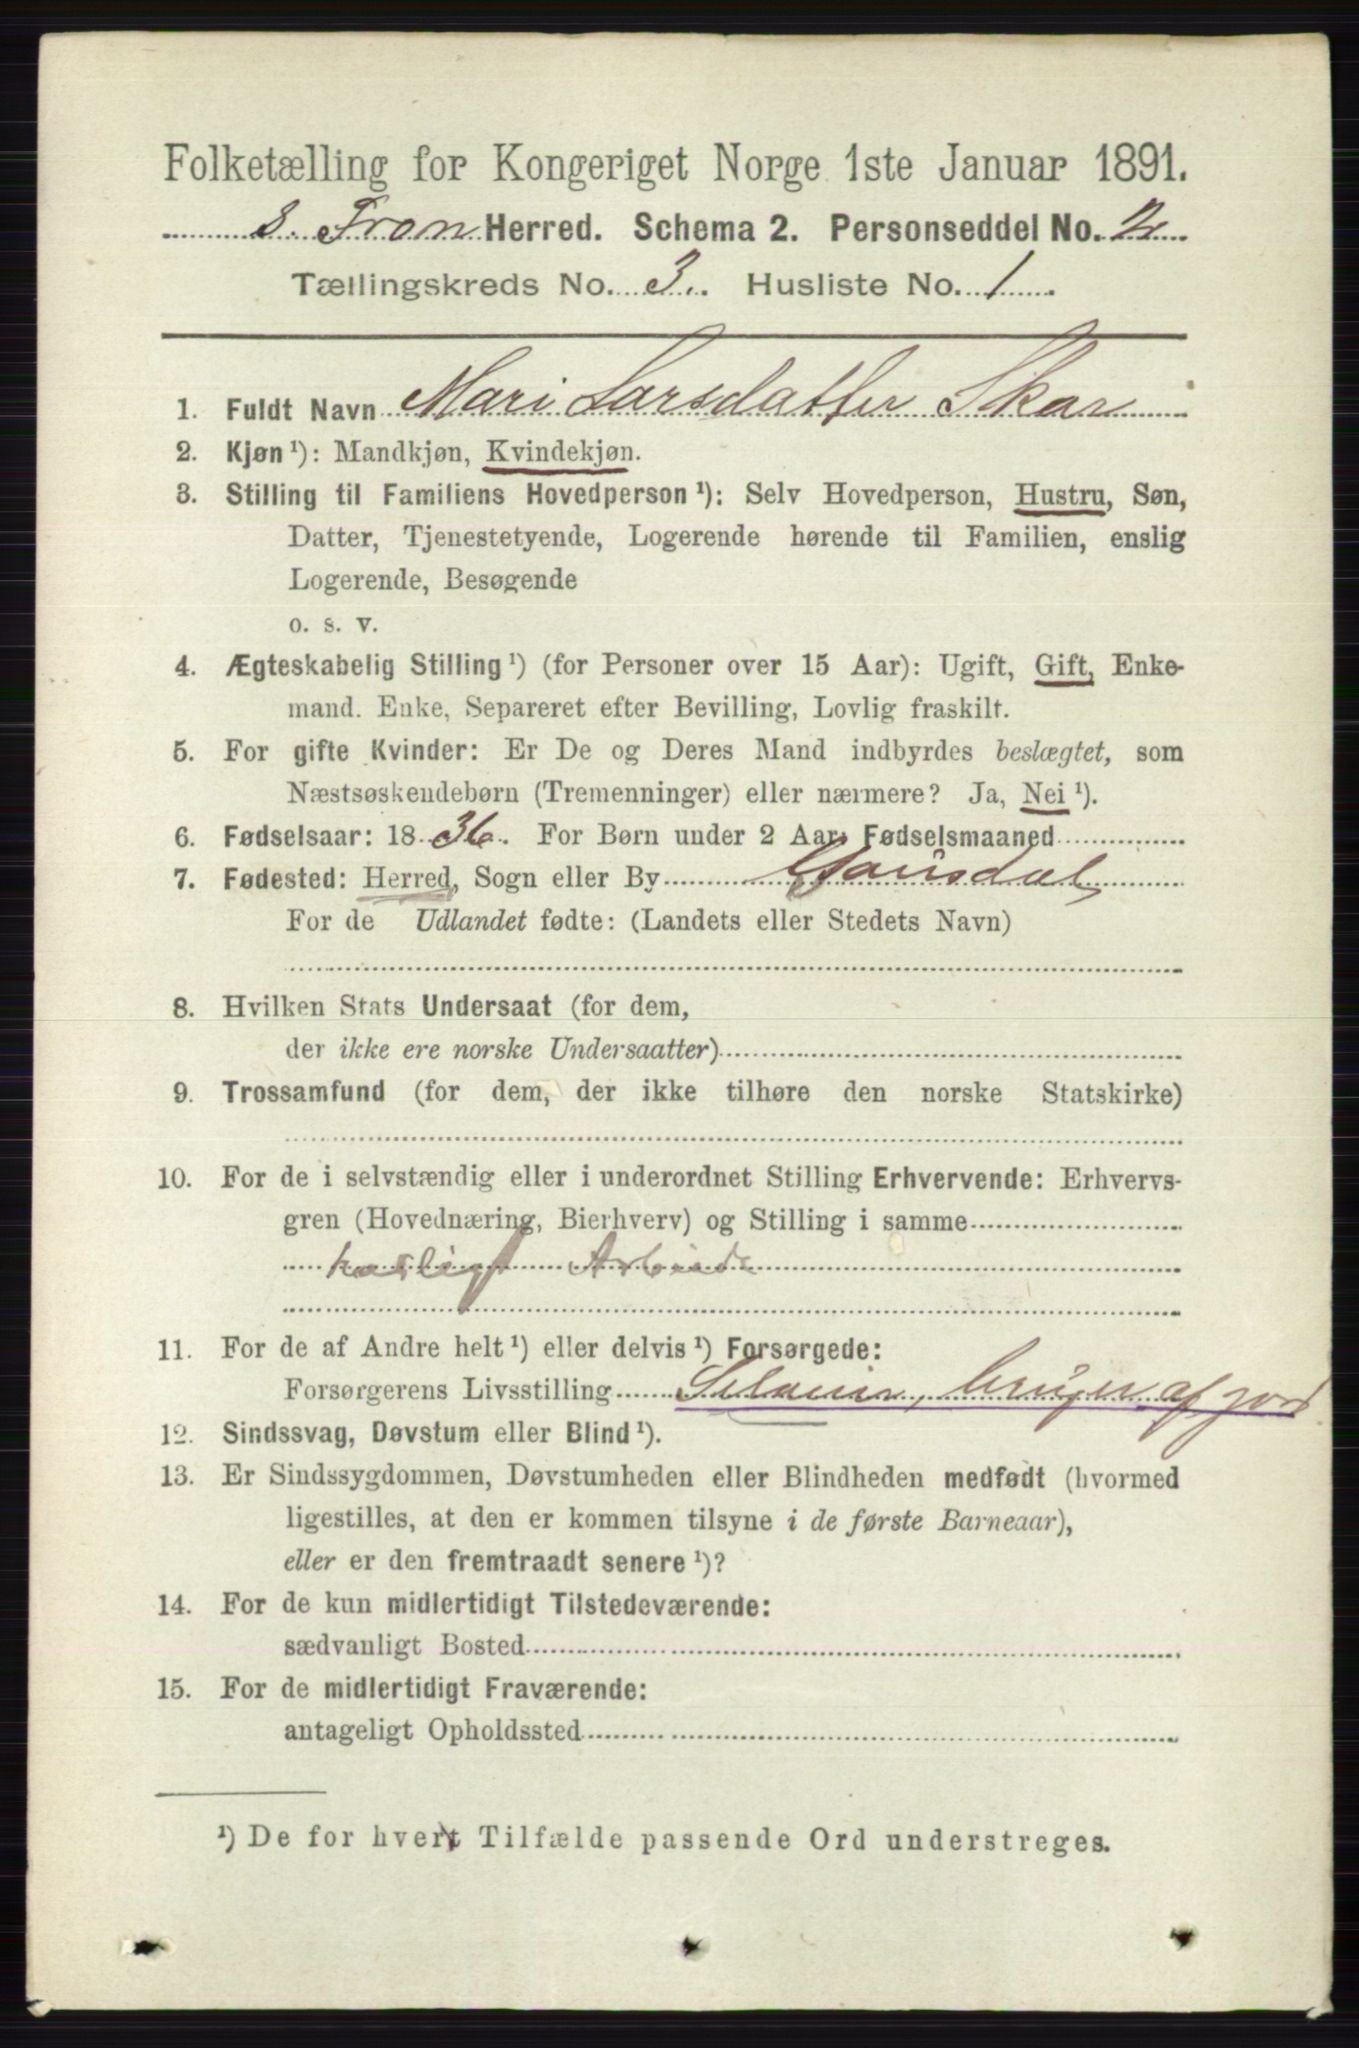 Folketælling for Kongeriget Norge 1ste Januar 1891.
S. Fron Herred. Schema 2. Personseddel No. 2.
Tællingskreds No. 3. Husliste No. 1
1. Fuldt Navn Mari Larsdatter Skar
2. Kjøn ¹): Mandkjøn, Kvindekjøn.
3. Stilling til Familiens Hovedperson ¹): Selv Hovedperson, Hustru, Søn,
Datter, Tjenestetyende, Logerende hørende til Familien, enslig
Logerende, Besøgende
o. s. v.
4. Ægteskabelig Stilling ¹) (for Personer over 15 Aar): Ugift, Gift, Enke-
mand. Enke, Separeret efter Bevilling, Lovlig fraskilt.
5. For gifte Kvinder: Er De og Deres Mand indbyrdes beslægtet, som
Næstsøskendebørn (Tremenninger) eller nærmere? Ja, Nei ¹).
6. Fødselsaar: 18 36. For Børn under 2 Aar, Fødselsmaaned
7. Fødested: Herred, Sogn eller By Gausdal
For de Udlandet fødte: (Landets eller Stedets Navn)
8. Hvilken Stats Undersaat (for dem,
der ikke ere norske Undersaatter)
9. Trossamfund (for dem, der ikke tilhøre den norske Statskirke)
10. For de i selvstændig eller i underordnet Stilling Erhvervende: Erhvervs-
gren (Hovednæring, Bierhverv) og Stilling i samme
husligt Arbeide
11. For de af Andre helt ¹) eller delvis ¹) Forsørgede:
Forsørgerens Livsstilling Selveier, bruger af jord
12. Sindssvag, Døvstum eller Blind ¹).
13. Er Sindssygdommen, Døvstumheden eller Blindheden medfødt (hvormed
ligestilles, at den er kommen tilsyne i de første Barneaar),
eller er den fremtraadt senere ¹)?
14. For de kun midlertidigt Tilstedeværende:
sædvanligt Bosted
15. For de midlertidigt Fraværende:
antageligt Opholdssted
¹) De for hvert Tilfælde passende Ord understreges.